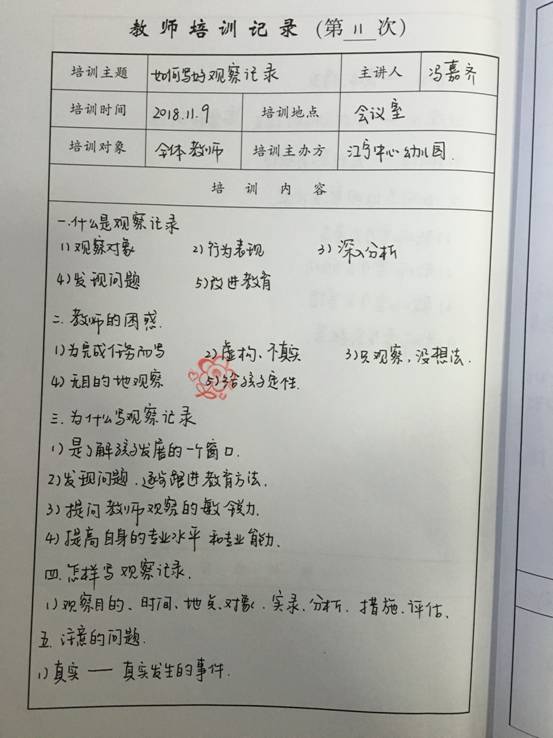 教师培训记录(第11次)
培训主题 如何写好观察记录 主讲人 冯嘉齐
培训时间 2018.11.9 培训地点 会议室
培训对象 全体教师 培训主办方 江宁中心幼儿园.
培训内容
一.什么是观察记录
1)观察对象 2)行为表现 3)深入分析
4)发现问题 5)改进教育
二.教师的困惑.
1)为完成任务而写 2)虚构、不真实 3)只观察,没想法.
4)无目的地观察 5)给孩子定性.
三.为什么写观察记录
1)是了解孩子发展的一个窗口.
2)发现问题.逐步跟进教育方法.
3)提问教师观察的敏锐力.
4)提高自身的专业水平和专业能力.
四.怎样写观察记录.
1)观察目的、时间、地点、对象.实录、分析.措施.评估.
五.注意的问题.
1)真实——真实发生的事件.